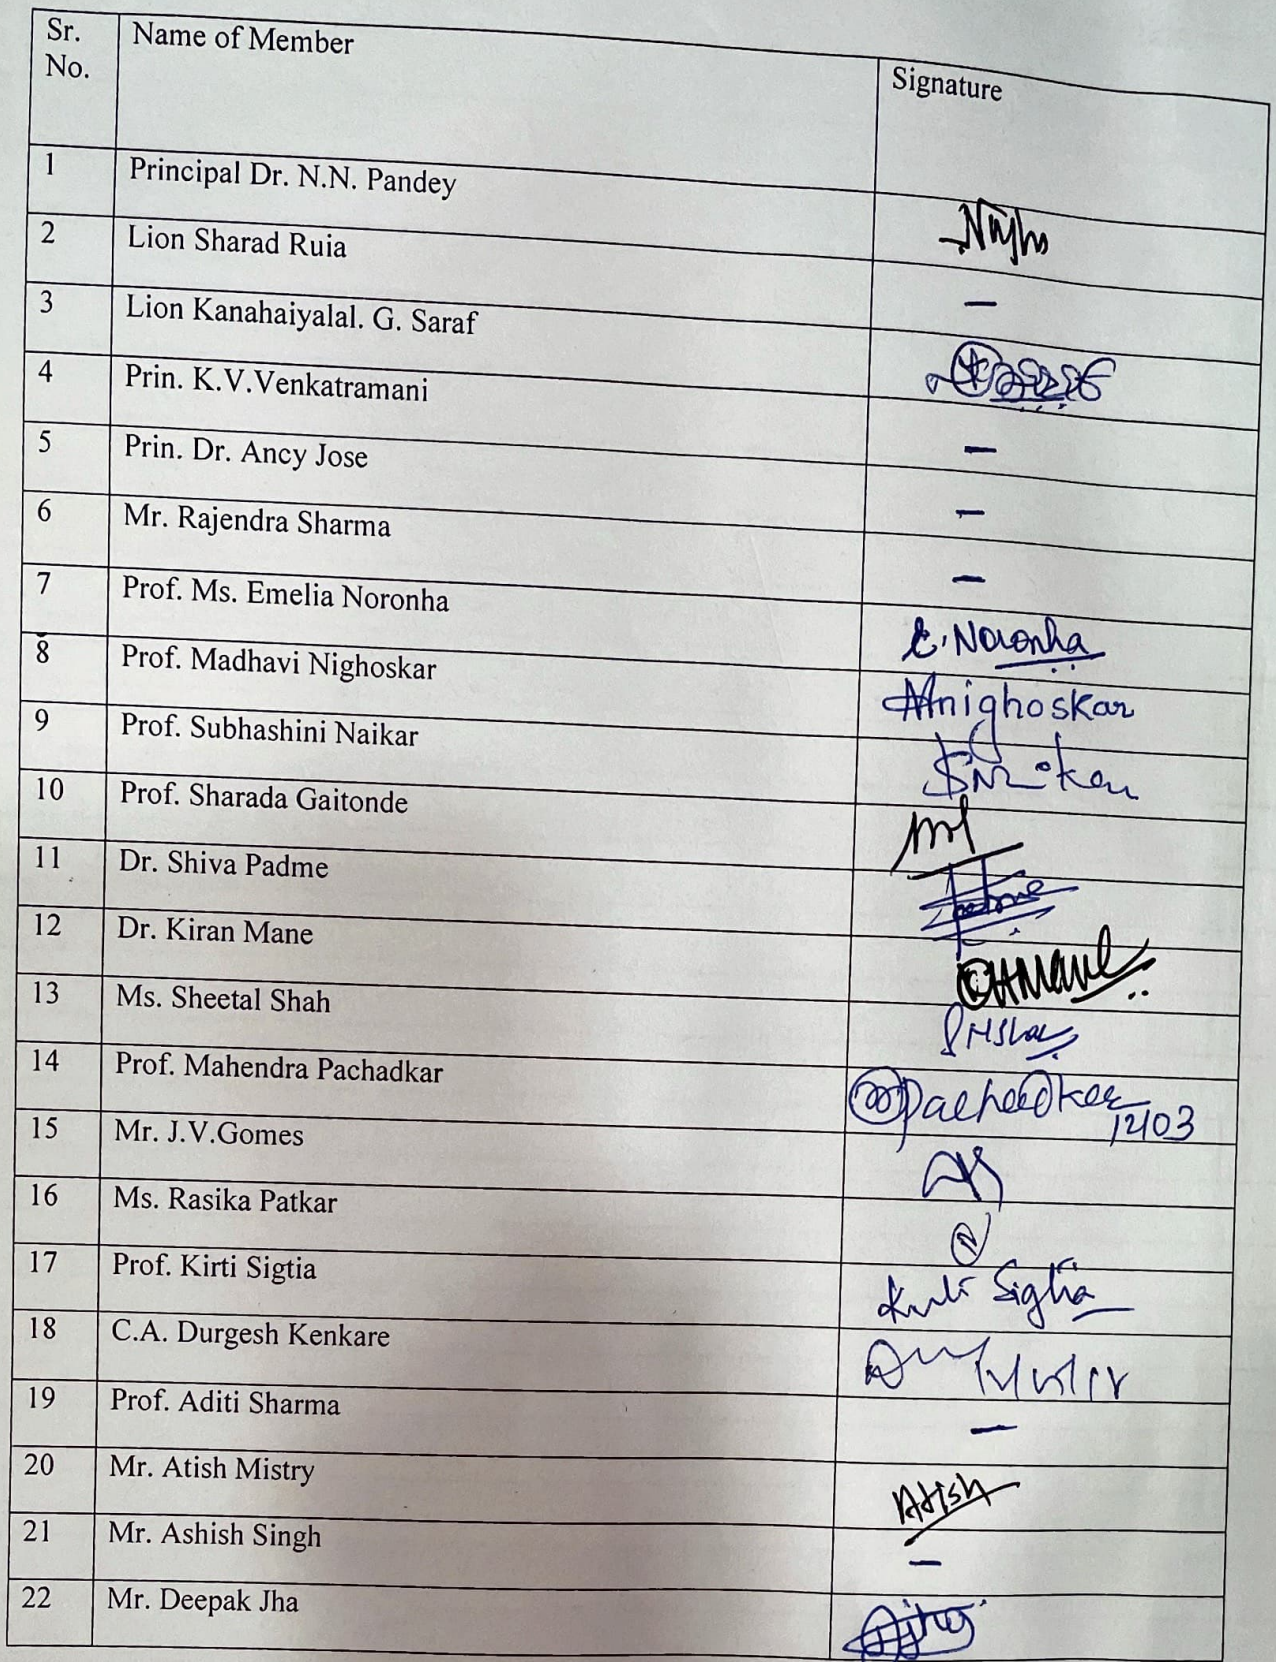 Sr. No. Name of Member Signature
1 Principal Dr. N.N. Pandey
2 Lion Sharad Ruia —
3 Lion Kanahaiyalal. G. Saraf
4 Prin. K.V.Venkatramani —
5 Prin. Dr. Ancy Jose —
6 Mr. Rajendra Sharma —
7 Prof. Ms. Emelia Noronha E. Noronha
8 Prof. Madhavi Nighoskar Mnighoskar
9 Prof. Subhashini Naikar
10 Prof. Sharada Gaitonde
11 Dr. Shiva Padme
12 Dr. Kiran Mane
13 Ms. Sheetal Shah
14 Prof. Mahendra Pachadkar 12/03
15 Mr. J.V.Gomes
16 Ms. Rasika Patkar
17 Prof. Kirti Sigtia Kirti Sigtia
18 C.A. Durgesh Kenkare
19 Prof. Aditi Sharma —
20 Mr. Atish Mistry Atish
21 Mr. Ashish Singh —
22 Mr. Deepak Jha